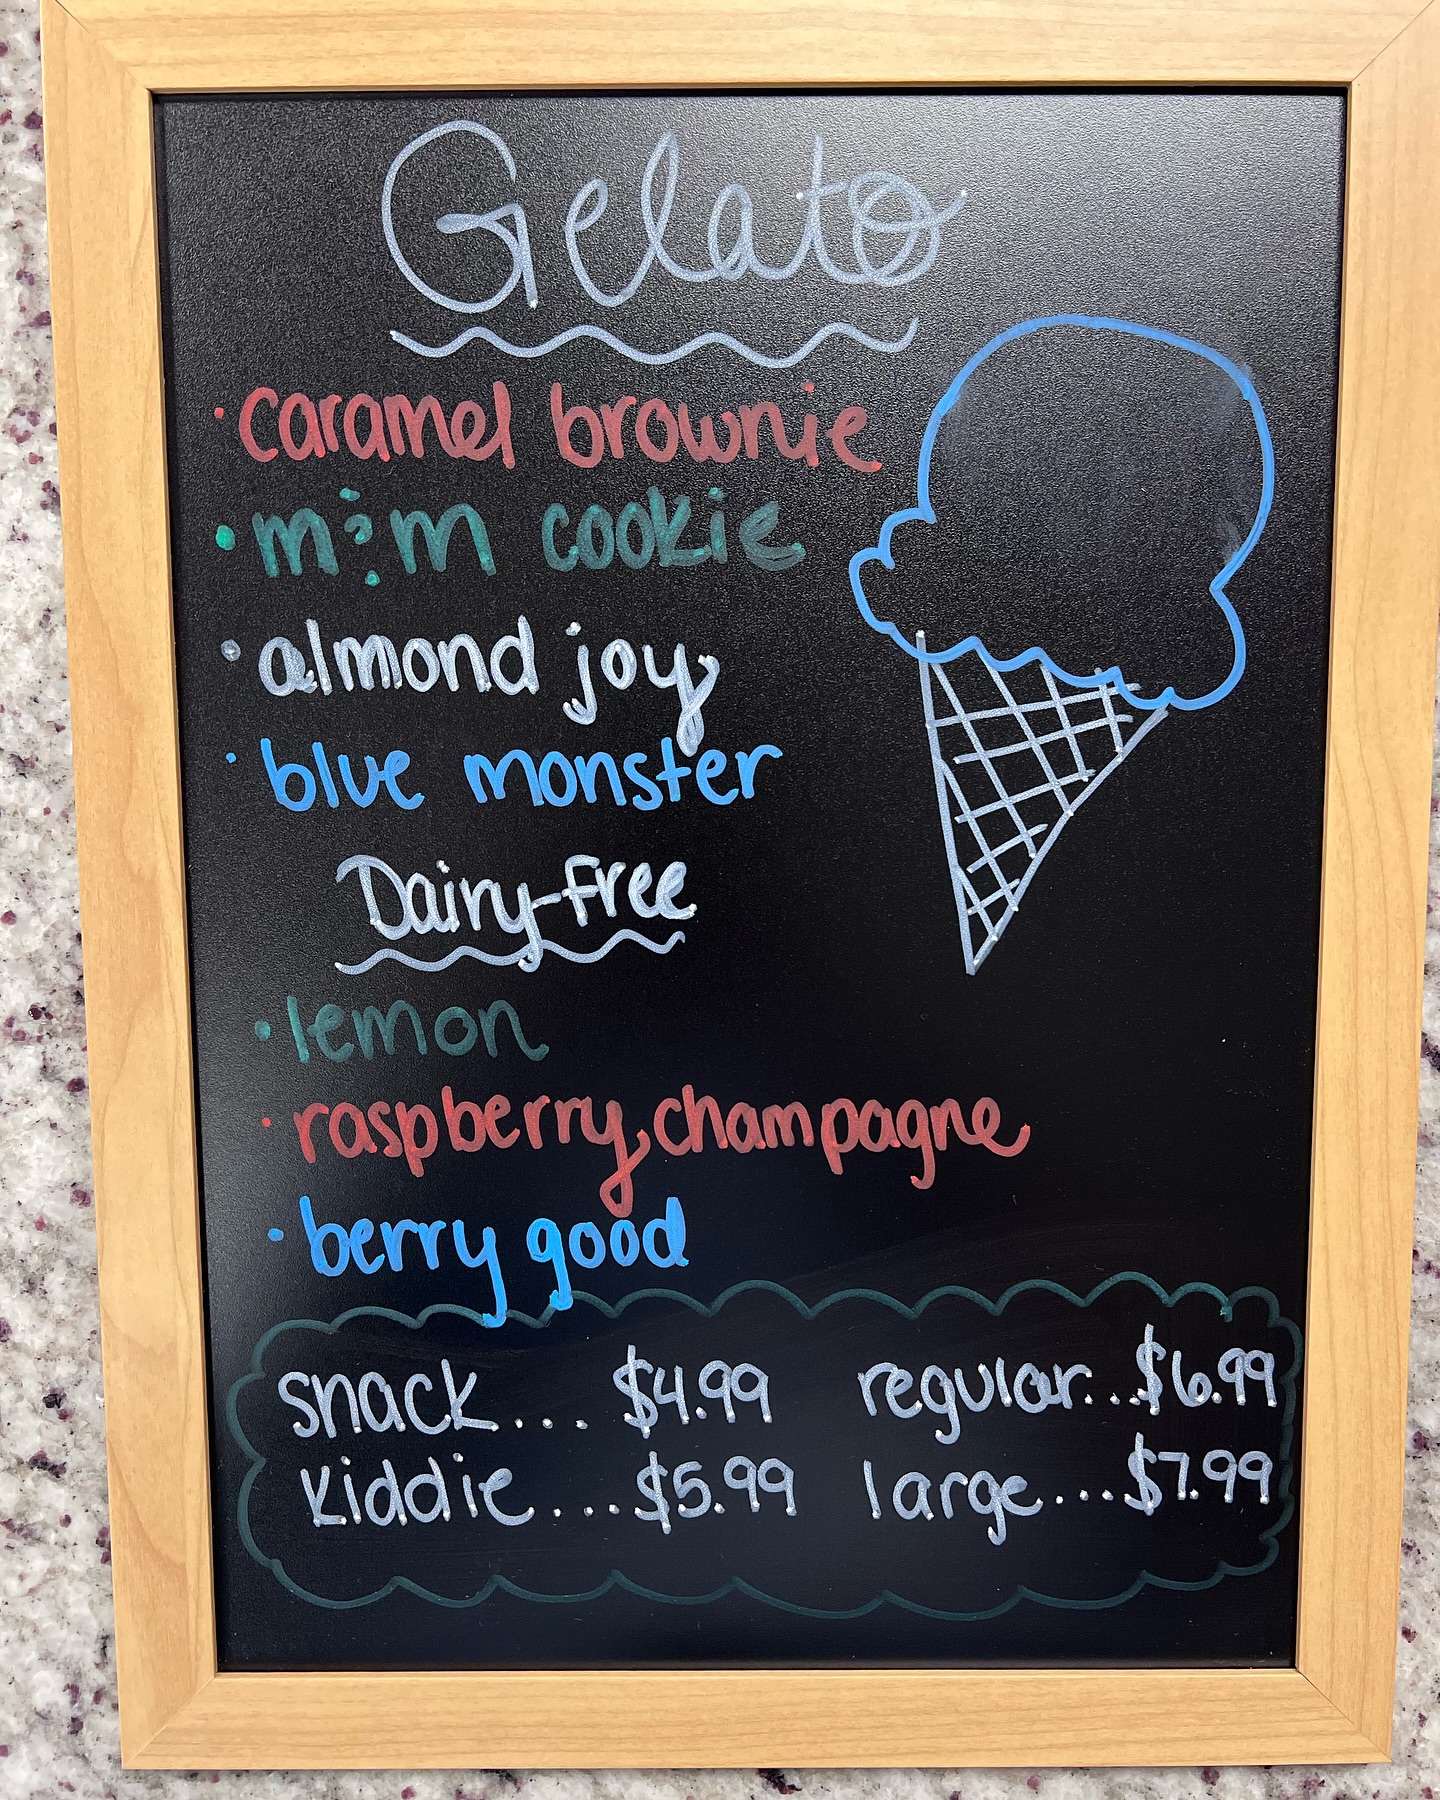 Gelato
· caramel brownie
· m&m cookie
· almond joy
· blue monster
Dairy-free
· lemon
· raspberry champagne
· berry good
snack.... $4.99 regular...$6.99
kiddie....$5.99 large....$7.99